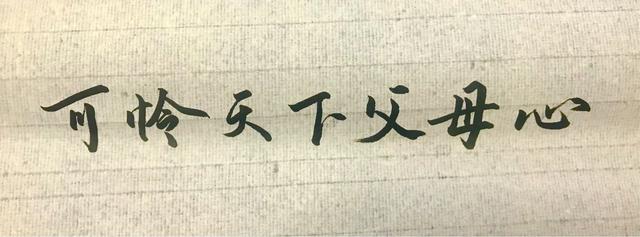 可怜天下父母心